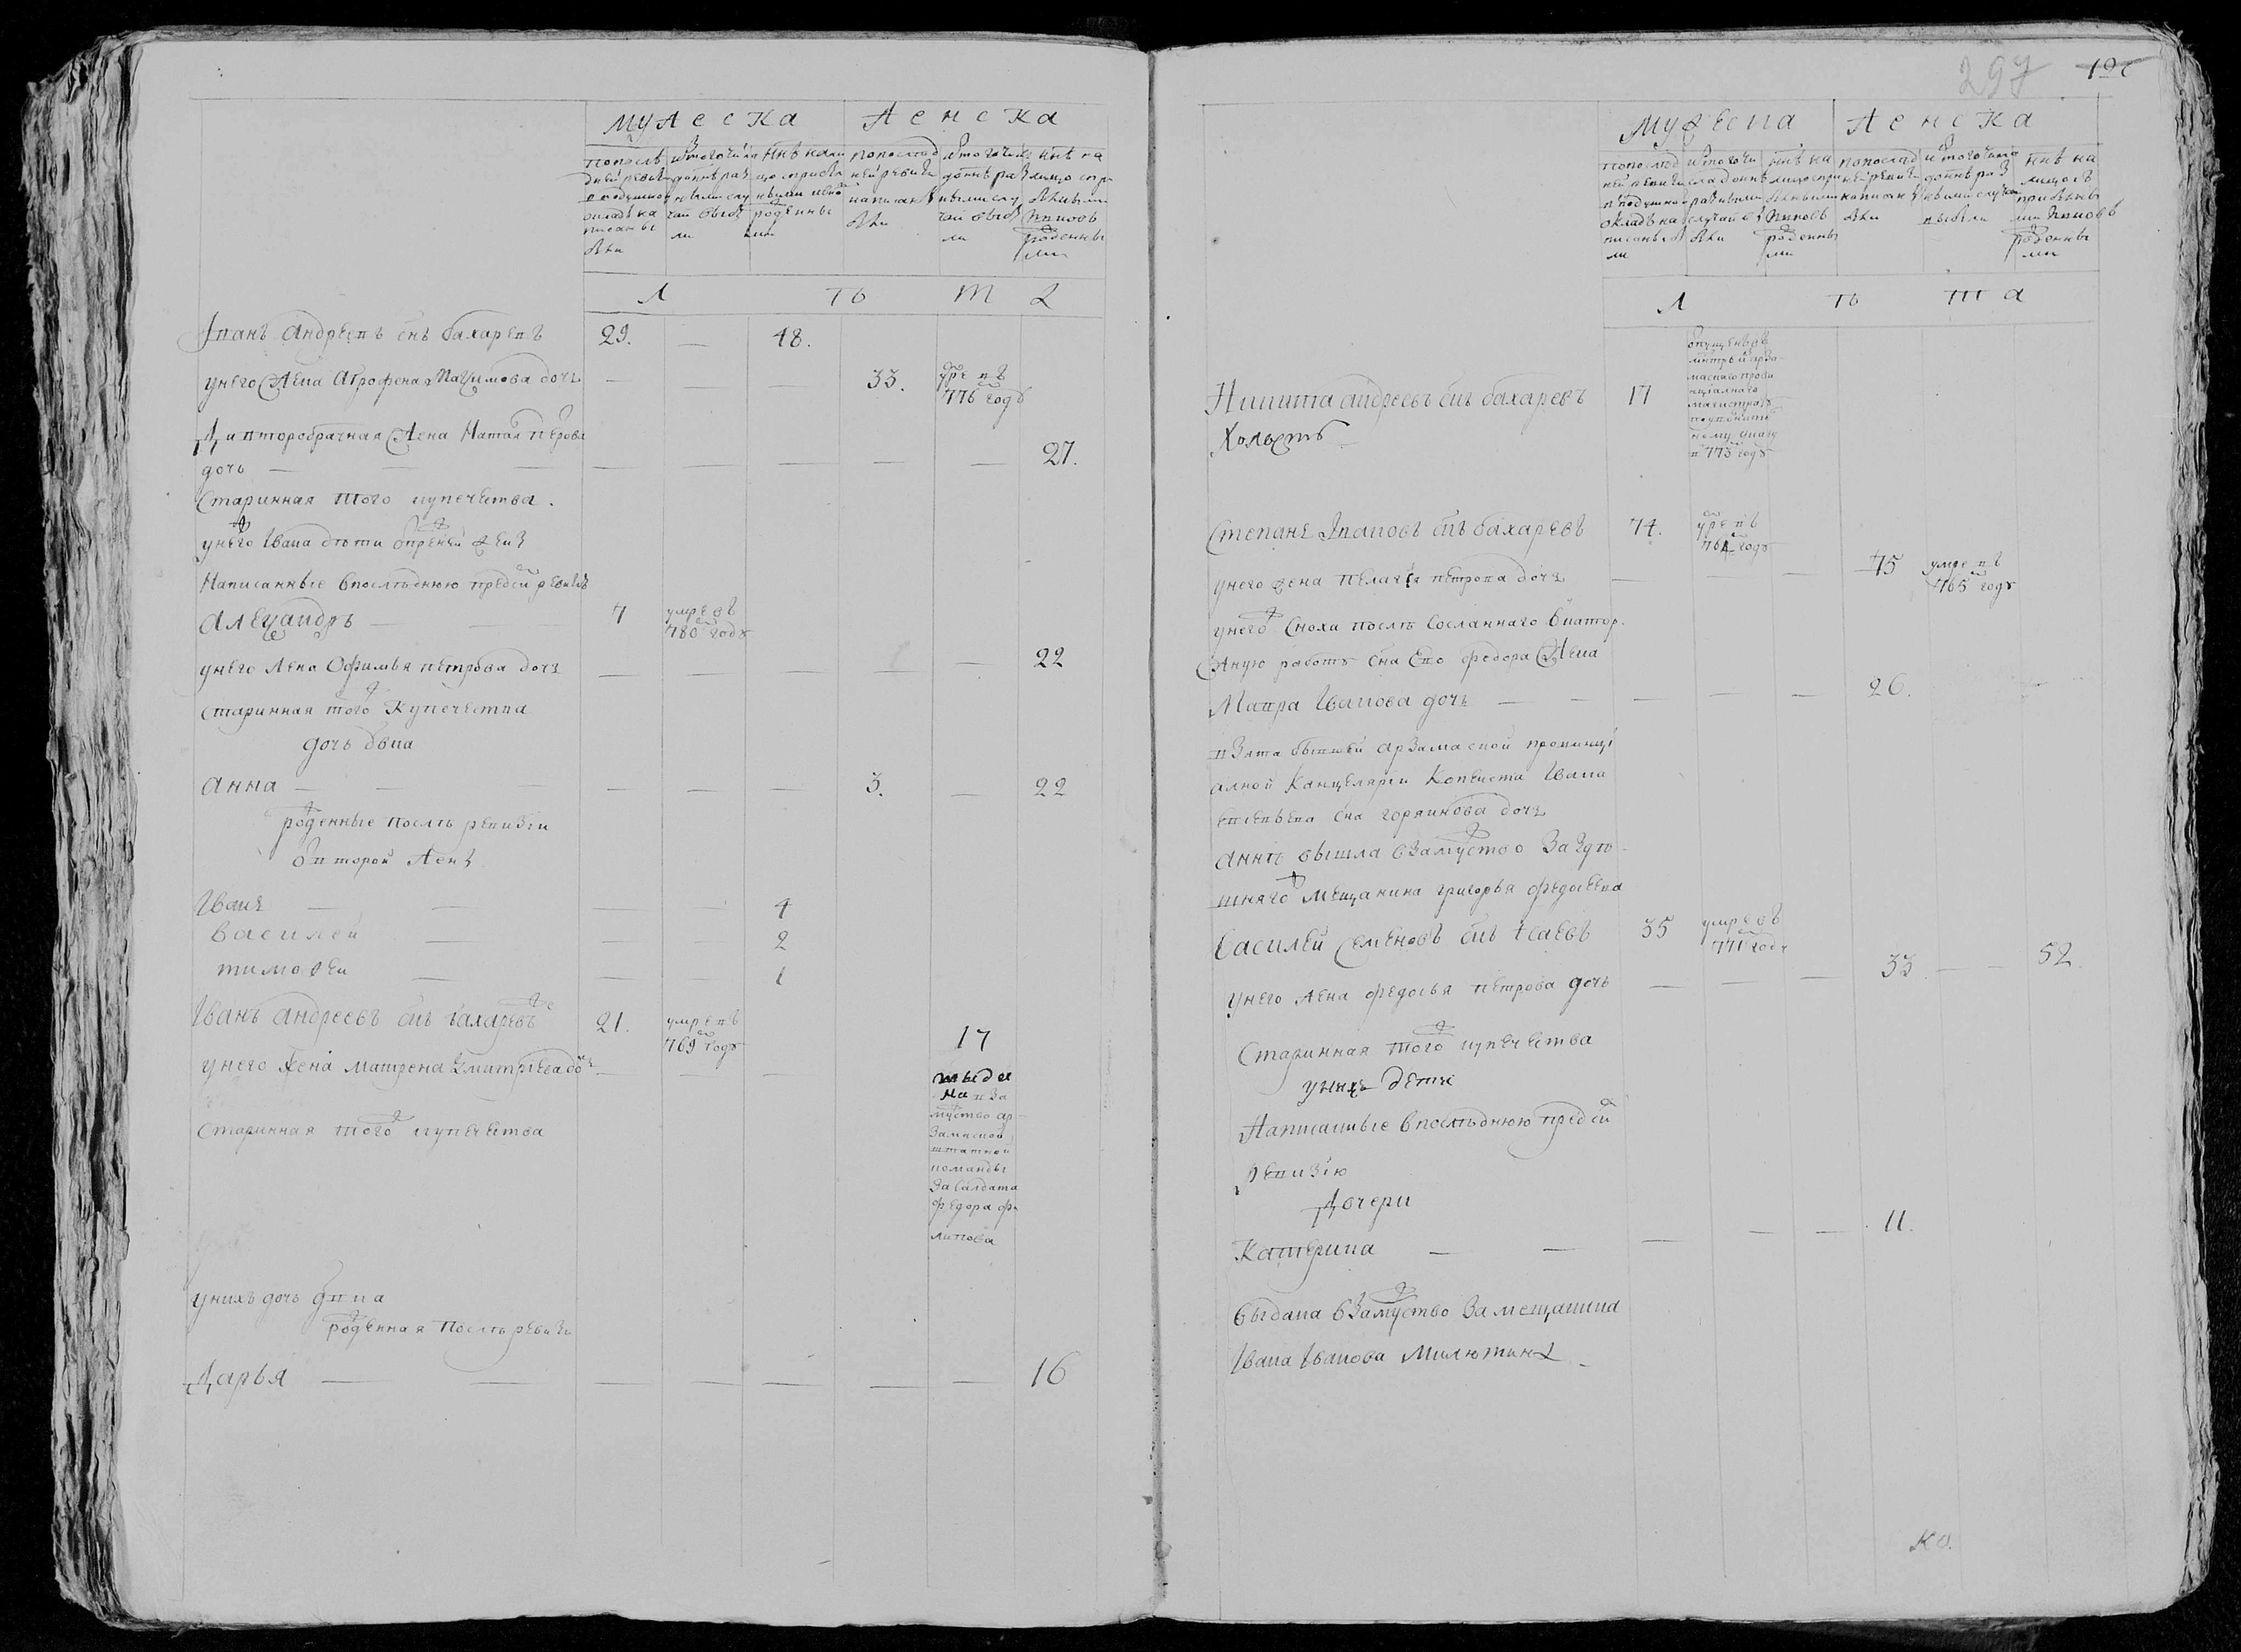 мужеска женска
по послѣ дней ревизи в подушной окладъ написаны были
ис того числа до ннѣ разными случаи выбыли
ннѣ налицо с прибылыми и вновь рожденными
по послѣдней ревизи написаны были
ис того числа до ннѣ разными случаи выбыли
ннѣ налицо с прибылыми и вновь рожденными
лѣта
Iванъ андреевъ снъ бахаревъ 29. — 48.
у него жена аграфена Маѯимова дочь — — — 33. умре въ 776 году
Да второбрачная жена Наталья петрова
дочь — — — — — — 27.
Старинная того купечества.
у него Ивана дѣти от первой жены
Написанные в последнюю пред сей ревизiю
Алеѯандръ — 7 умре въ 780 году
у него жена Офимья петрова дочь — — — — — 22
старинная того купечества
дочь ѻвца
анна — — — 3. — 22
рожденные послѣ ревизiи
от второй жены
Иванъ — — — — 4
василей — — 2
тимоѳей — — 1
Иванъ андреевъ снъ бахаревъ 21. умре въ 769 году
у него жена матрена дмитриева дочь — — — 17
выдана в замужство арзамаской штатной команды за салдата федора филипова
Старинная того купечества
у нихъ дочь
рожденная послѣ ревизи
Дарья — — — — — — — 16
297
мужеска женска
по последней ревизи в подушной окладъ написаны были
ис того числа до ннѣ разными случаи выбыли
ннѣ налицо с прибылыми и вновь рожденными
по последней ревизи написаны были
ис того числа до ннѣ разными случаи выбыли
ннѣ налицо с прибылыми и вновь рожденными
лѣта
Никита андреевъ снъ бахаревъ 17
Холостъ
арзамаского провинциалного магистрата 773 году
Степанъ Iвановъ снъ бахаревъ 74. умре въ 764 году
у него жена пелагея петрова дочь — — 75 умре въ 765 году
у него сноха послѣ сосланнаго в катор
жную работу сна ево федора жена
Мавра Иванова дочь — — — — — 26.
взята бывшей арзамаской провинцi
алной канцелярiи копеиста Ивана
сна горяинова дочь
аннѣ вышла в замуство за здѣ
шняго мещанина григорья федосеева
Василей Семеновъ снъ Исаевъ 35 умре въ 771 году
у него жена федосья петрова дочь — — — 33 — — 52
Старинная того купечества
у нихъ дети
Написанные в последнюю пред сей
ревизiю
Дочери
Катерина — — — — — 11.
выдана в замуство за мещанина
Ивана Иванова Милютина
КО.